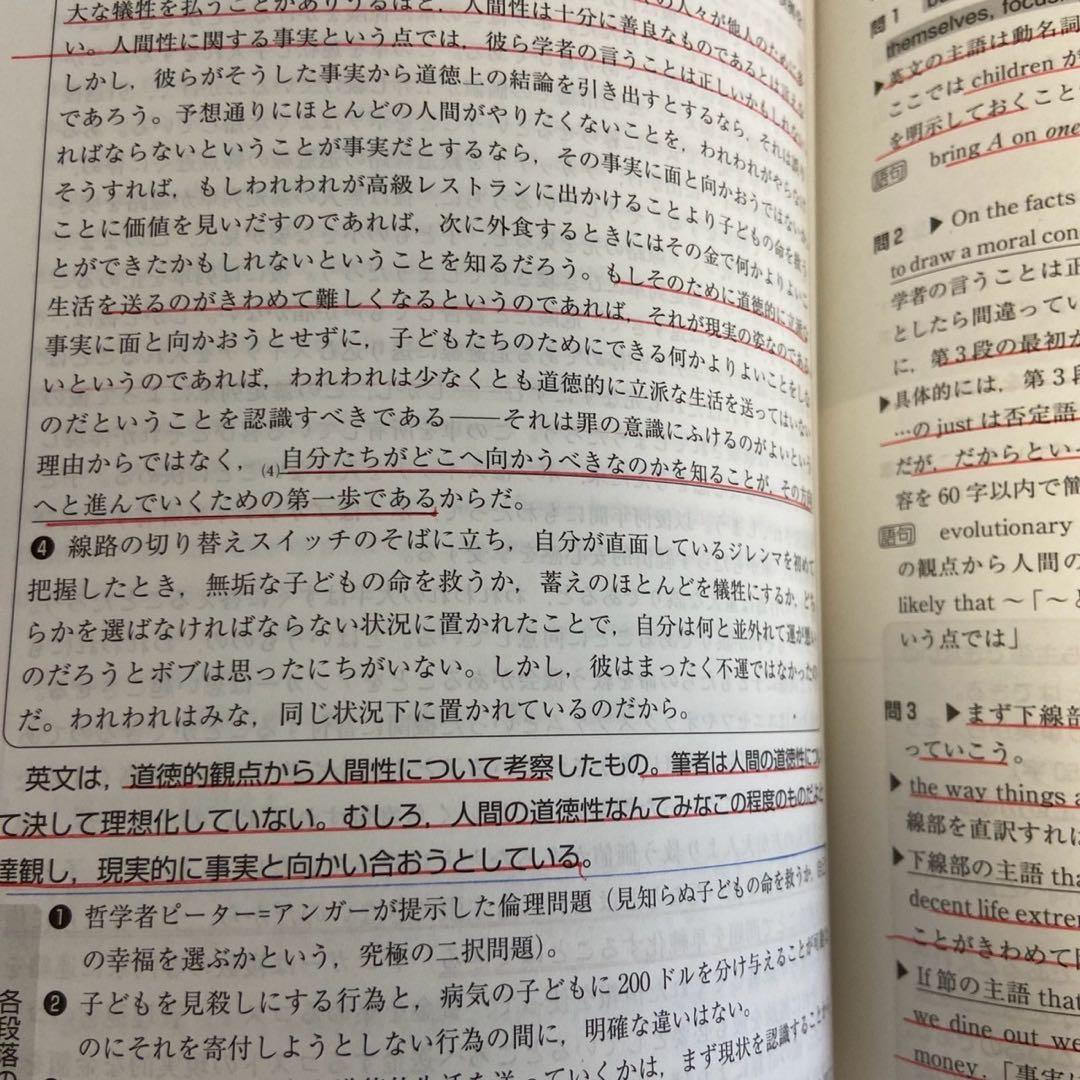 大な犠牲を払うことがありうるほど，人間性は十分に善良なものであるとは言えな
い。人間性に関する事実という点では，彼ら学者の言うことは正しいかもしれない
しかし，彼らがそうした事実から道徳上の結論を引き出すとするなら，それは誤り
であろう。予想通りにほとんどの人間がやりたくないことを，われわれがやらなけ
ればならないということが事実だとするなら，その事実に面と向かおうではないか。
そうすれば，もしわれわれが高級レストランに出かけることより子どもの命を救う
ことに価値を見いだすのであれば，次に外食するときにはその金で何かよりよいこ
とができたかもしれないということを知るだろう。もしそのために道徳的に立派な
生活を送るのがきわめて難しくなるというのであれば，それが現実の姿なのであ
事実に面と向かおうとせずに，子どもたちのためにできる何かよりよいことをしな
いというのであれば，われわれは少なくとも道徳的に立派な生活を送ってはいない
のだということを認識すべきである──それは罪の意識にふけるのがよいという
理由からではなく，(4)自分たちがどこへ向かうべきなのかを知ることが，その方向
へと進んでいくための第一歩であるからだ。
❹ 線路の切り替えスイッチのそばに立ち，自分が直面しているジレンマを初めて
把握したとき，無垢な子どもの命を救うか，蓄えのほとんどを犠牲にするか，どち
らかを選ばなければならない状況に置かれたことで，自分は何と並外れて運が悪い
のだろうとボブは思ったにちがいない。しかし，彼はまったく不運ではなかったの
だ。われわれはみな，同じ状況下に置かれているのだから。
英文は，道徳的観点から人間性について考察したもの。筆者は人間の道徳性につい
て決して理想化していない。むしろ，人間の道徳性なんてみなこの程度のものだよと
達観し，現実的に事実と向かい合おうとしている。
❶ 哲学者ピーター=アンガーが提示した倫理問題（見知らぬ子どもの命を救うか，自己
の幸福を選ぶかという，究極の二択問題）。
❷ 子どもを見殺しにする行為と，病気の子どもに 200 ドルを分け与えることが可能な
のにそれを寄付しようとしない行為の間に，明確な違いはない。
生活を送っていくかは，まず現状を認識すること
各段落の
問1
themselves, focus
▶英文の主語は動名詞
ここでは children が
を明示しておくこと
語句 bring A on one
問2 ▶ On the facts
to draw a moral con
学者の言うことは正
としたら間違ってい
に，第3段の最初か
▶具体的には，第3段
…の just は否定語
だが，だからといー
容を 60 字以内で簡
語句 evolutionary
の観点から人間の
likely that ～「～と
いう点では」
問3 ▶まず下線部
っていこう。
▶ the way things a
線部を直訳すれば
▶下線部の主語 tha
decent life extrem
ことがきわめて困
▶ If 節の主語 that
we dine out we
money.「事実に